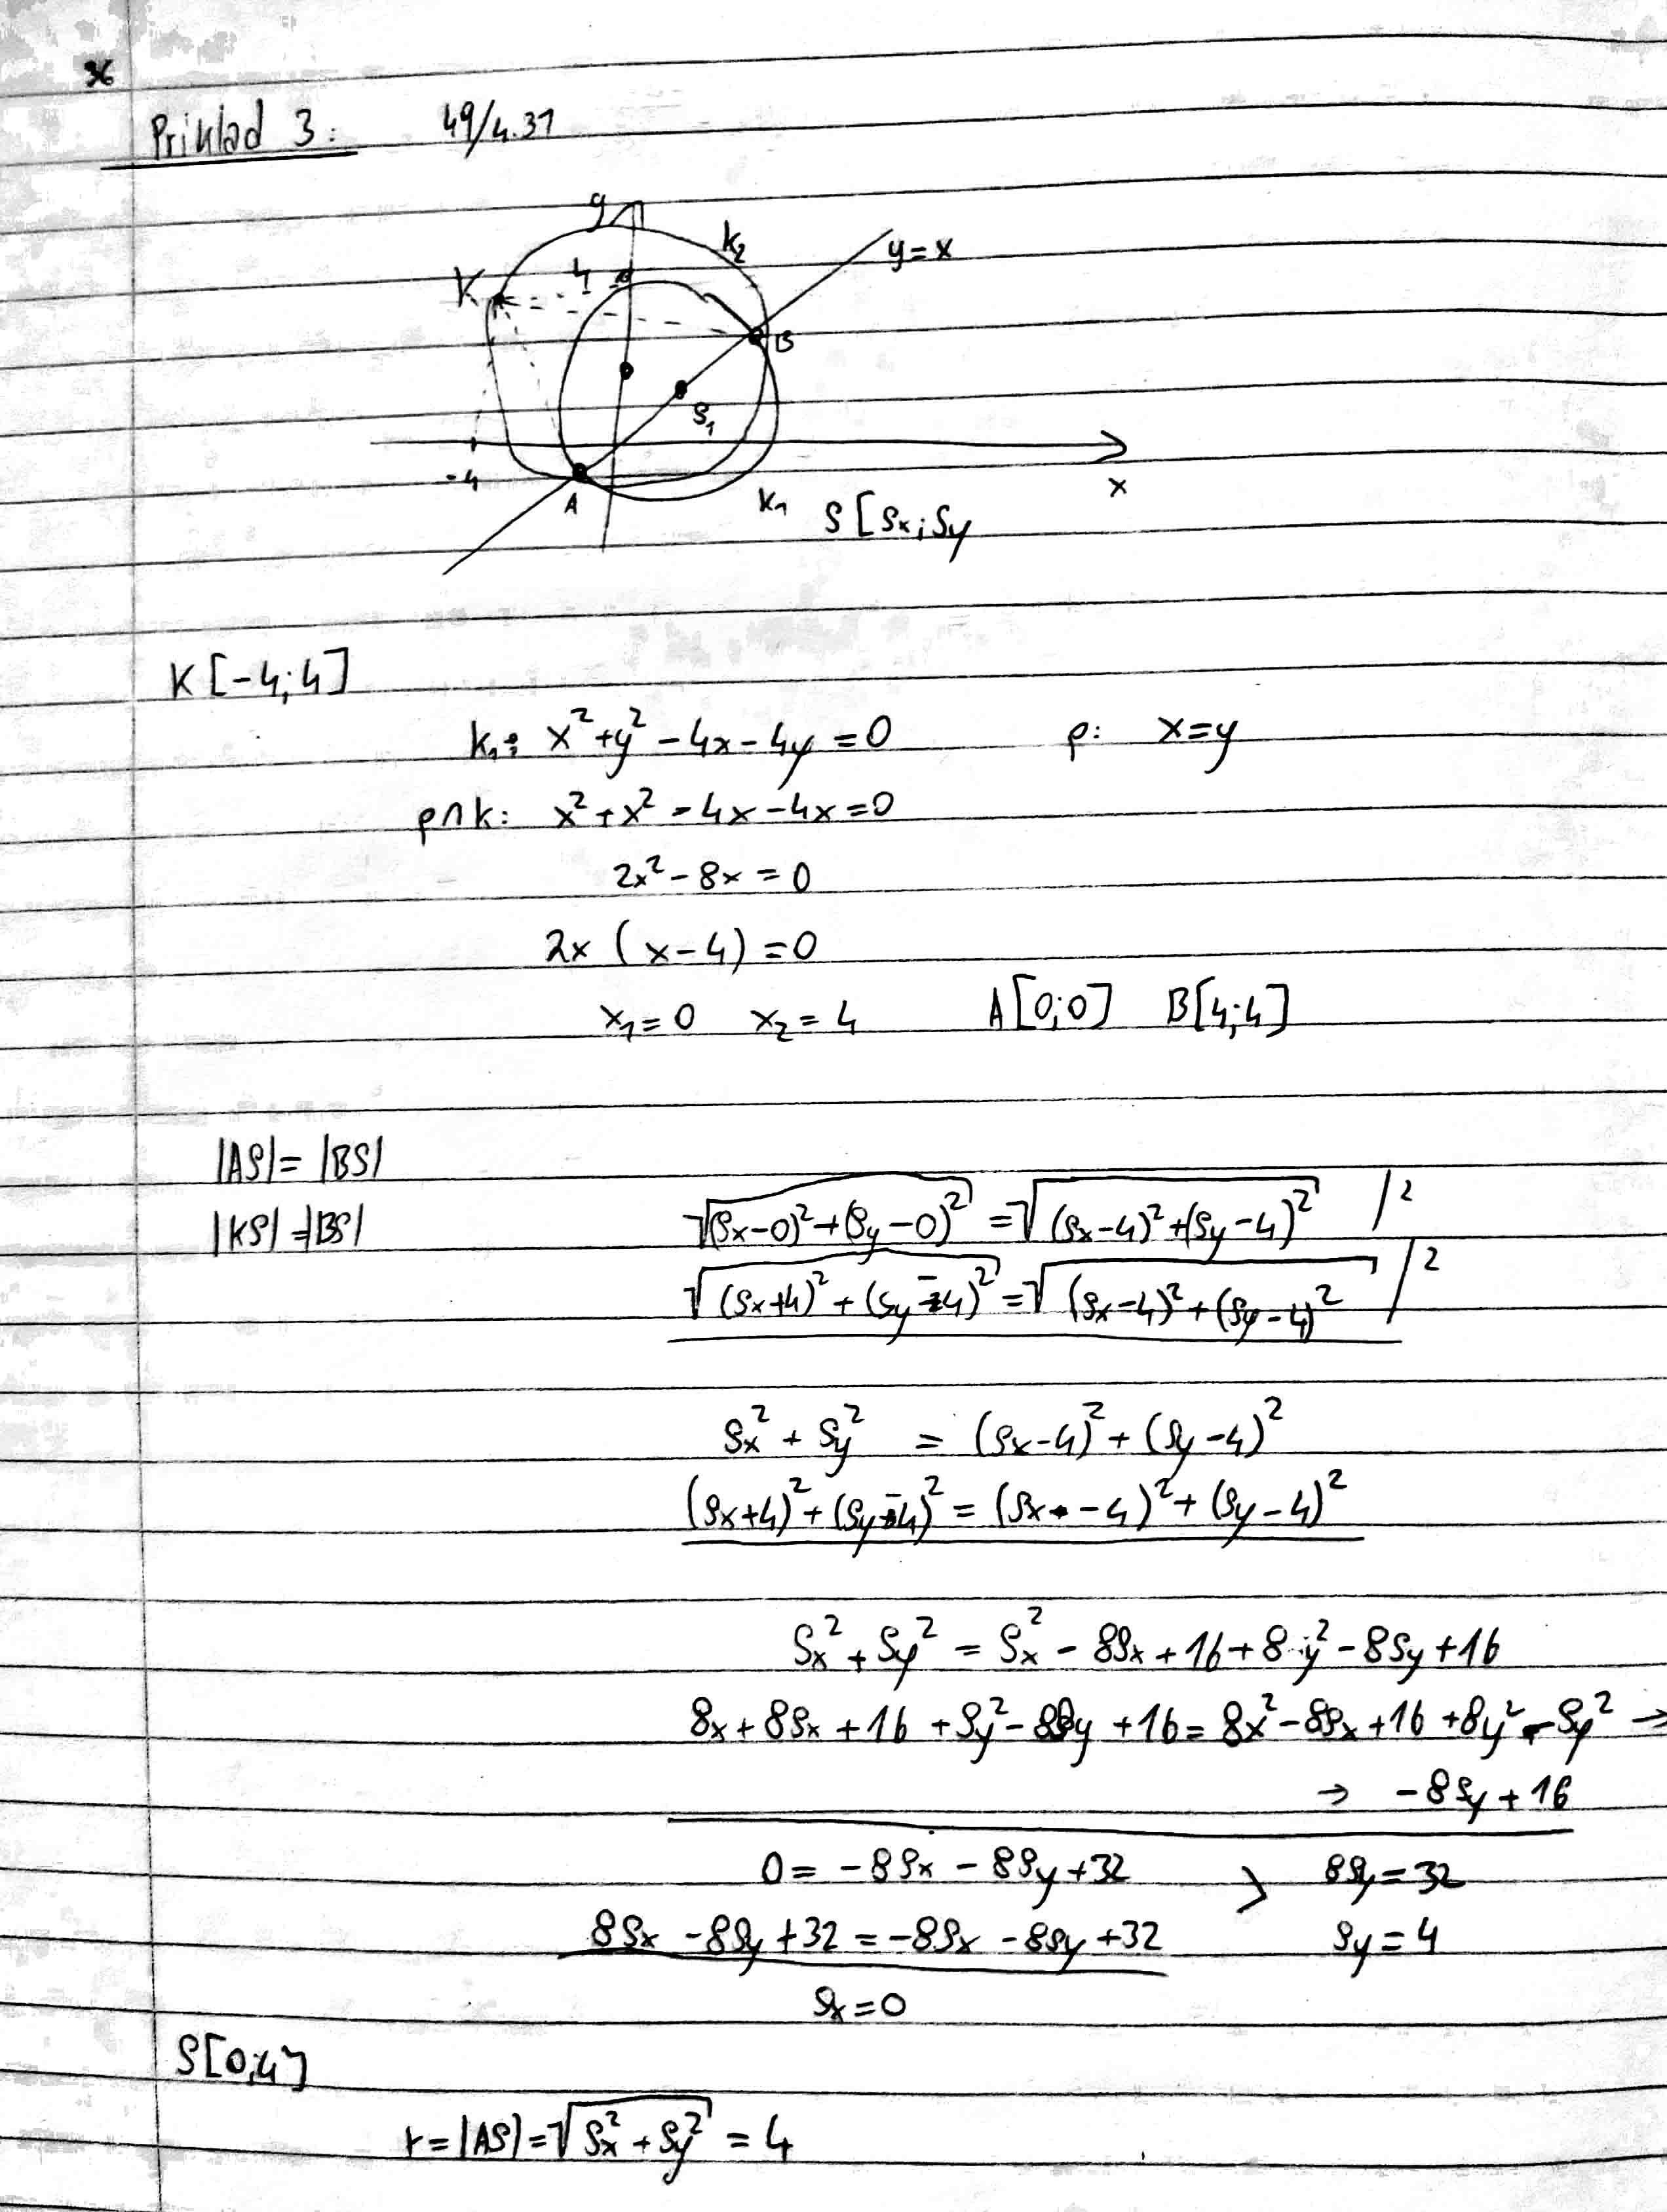 36
Priklad 3: 49/4.31
y
k₂
y=x
K
4
B
S₁
-4
A
x
k₁
S[Sx;Sy
K[-4;4]
k₁: x²+y²-4x-4y=0 p: x=y
p∩k: x²+x²-4x-4x=0
2x²-8x=0
2x(x-4)=0
x₁=0 x₂=4 A[0;0] B[4;4]
|AS|=|BS|
|KS|=|BS|
√(Sx-0)²+(Sy-0)² = √(Sx-4)²+(Sy-4)² /²
√(Sx+4)²+(Sy-4)² = √(Sx-4)²+(Sy-4)² /²
Sx²+Sy² = (Sx-4)²+(Sy-4)²
(Sx+4)²+(Sy-4)² = (Sx-4)²+(Sy-4)²
Sx²+Sy² = Sx²-8Sx+16+Sy²-8Sy+16
Sx+8Sx+16+Sy²-8Sy+16=Sx²-8Sx+16+Sy²-Sy² →
→ -8Sy+16
0=-8Sx-8Sy+32 > 8Sy=32
8Sx-8Sy+32=-8Sx-8Sy+32 Sy=4
Sx=0
S[0;4]
r=|AS|=√Sx²+Sy² = 4